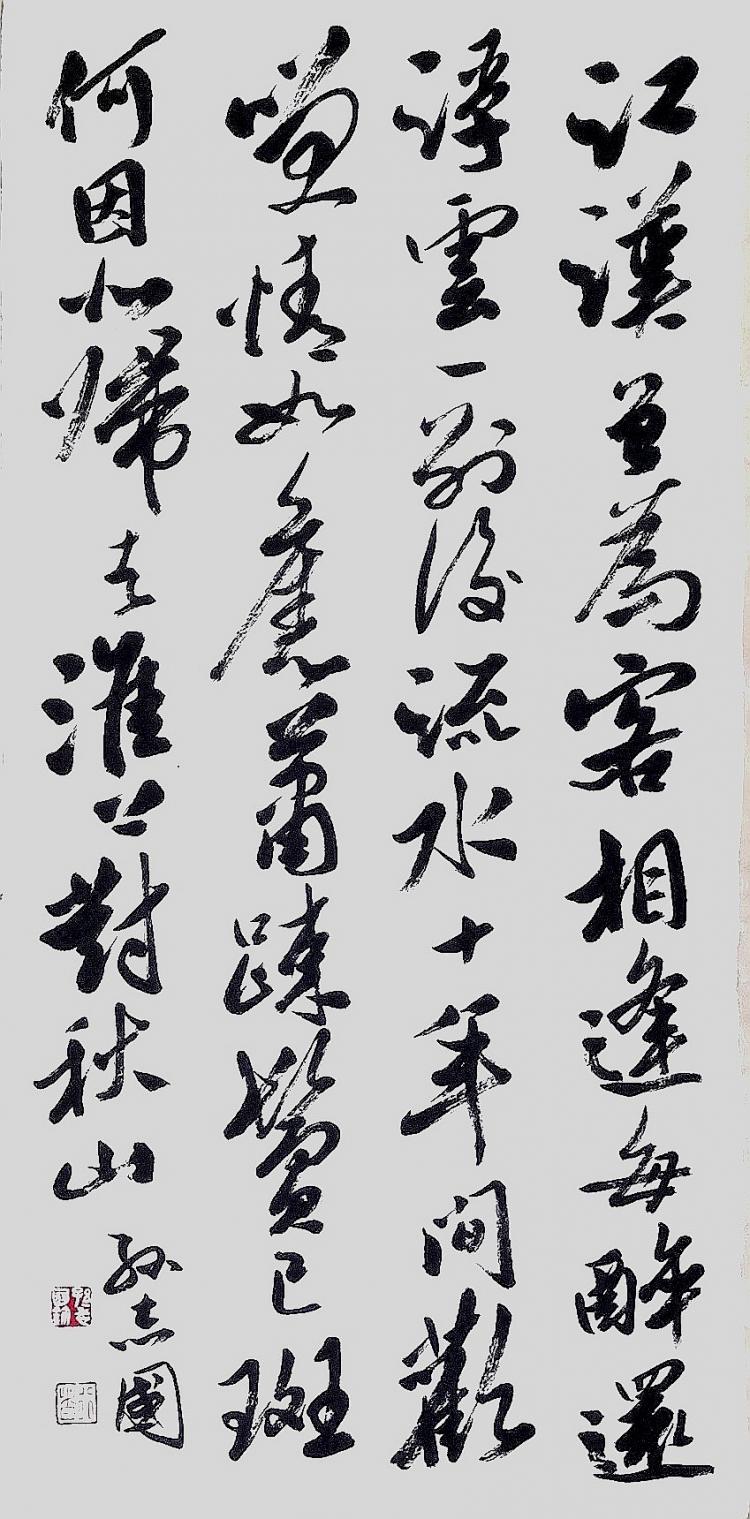 江漢曾為客相逢每醉還
浮雲一別後流水十年間歡
笑情如舊蕭疎鬢已斑
何因北歸去淮上對秋山
孫志國